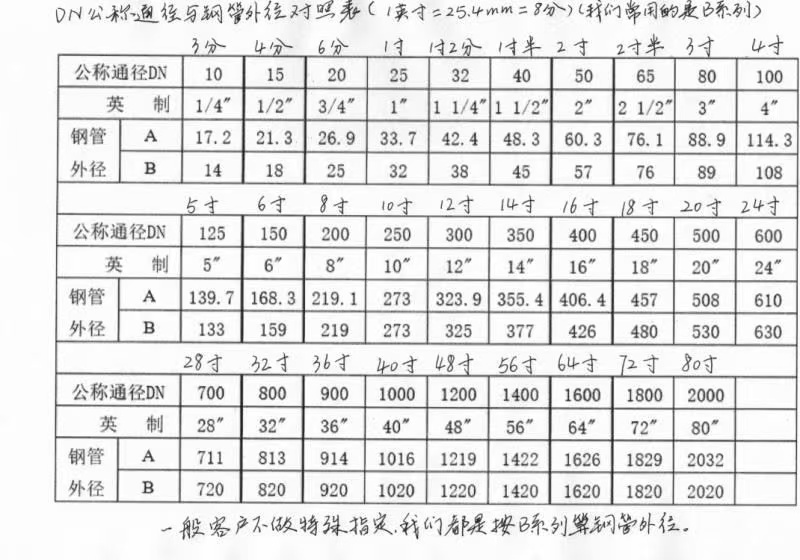 DN公称通径与钢管外径对照表(1英寸=25.4mm=8分)(我们常用的是B系列)
3分 4分 6分 1寸 1寸2分 1寸半 2寸 2寸半 3寸 4寸
公称通径DN 10 15 20 25 32 40 50 65 80 100
英 制 1/4″ 1/2″ 3/4″ 1″ 1 1/4″ 1 1/2″ 2″ 2 1/2″ 3″ 4″
钢管 A 17.2 21.3 26.9 33.7 42.4 48.3 60.3 76.1 88.9 114.3
外径 B 14 18 25 32 38 45 57 76 89 108
5寸 6寸 8寸 10寸 12寸 14寸 16寸 18寸 20寸 24寸
公称通径DN 125 150 200 250 300 350 400 450 500 600
英 制 5″ 6″ 8″ 10″ 12″ 14″ 16″ 18″ 20″ 24″
钢管 A 139.7 168.3 219.1 273 323.9 355.4 406.4 457 508 610
外径 B 133 159 219 273 325 377 426 480 530 630
28寸 32寸 36寸 40寸 48寸 56寸 64寸 72寸 80寸
公称通径DN 700 800 900 1000 1200 1400 1600 1800 2000
英 制 28″ 32″ 36″ 40″ 48″ 56″ 64″ 72″ 80″
钢管 A 711 813 914 1016 1219 1422 1626 1829 2032
外径 B 720 820 920 1020 1220 1420 1620 1820 2020
一般客户不做特殊指定,我们都是按B系列算钢管外径。